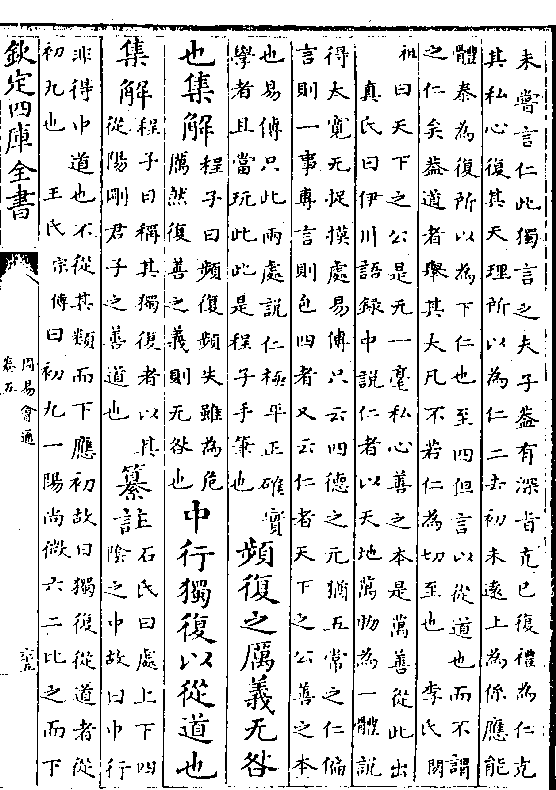 未嘗言仁此獨言之夫子葢有深㫖克已復禮為仁克
其私心復其天理所以為仁二去初未逺上為係應能
體泰為復所以為下仁也至四但言以從道也而不謂
之仁矣葢道者舉其大凡不若仁為切至也 李氏閎
祖曰天下之公是无一毫私心善之本是萬善從此出
真氏曰伊川語録中說仁者以天地萬物為一體說
得太寛无捉摸處易傳只云四德之元猶五常之仁偏
言則一事專言則包四者又云仁者天下之公善之本
也易傳只此兩處說仁極平正確實
學者且當玩此此是程子手筆也
頻復之厲義无咎
也集解
程子曰頻復頻失雖為危
厲然復善之義則无咎也
中行獨復以從道也
集解
程子曰稱其獨復者以其
從陽剛君子之善道也
纂註
石氏曰處上下四
陰之中故曰中行
非得中道也不從其類而下應初故曰獨復從道者從
初九也 王氏宗傳曰初九一陽尚微六二比之而下
欽定四庫全書
周易會通
卷五